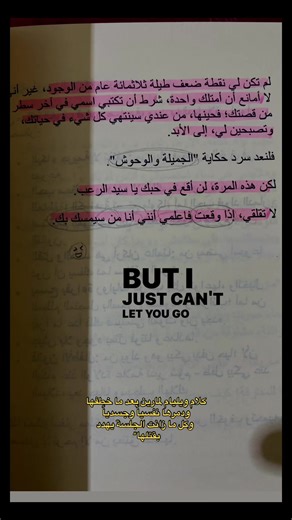 لم تكن لي نقطة ضعف طيلة ثلاثمائة عام من الوجود، غير أني
لا أمانع أن أمتلك واحدة، شرط أن تكتبي اسمي في آخر سطر
من قصتك؛ فحينها، من عندي سينتهي كل شيء في حياتك،
وتصبحين لي، إلى الأبد.
فلنعد سرد حكاية "الجميلة والوحوش".
لكن هذه المرة، لن أقع في حبك يا سيد الرعب.
لا تقلقي، إذا وقعت فاعلمي أنني أنا من سيمسك بك.
BUT I
JUST CAN'T
LET YOU GO
كلام ويليام لمارين بعد ما خطفها
ودمرها نفسيا وجسديا
وكل ما زادت الجلسة يهدد
بقتلها"